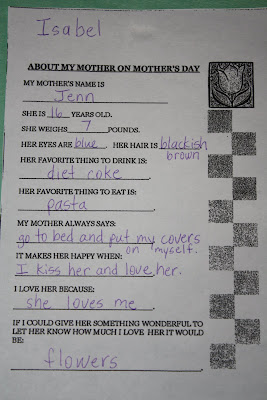 Isabel
ABOUT MY MOTHER ON MOTHER'S DAY
MY MOTHER'S NAME IS
Jenn
SHE IS 16 YEARS OLD.
SHE WEIGHS 7 POUNDS.
HER EYES ARE blue. HER HAIR IS blackish
brown
HER FAVORITE THING TO DRINK IS:
diet coke.
HER FAVORITE THING TO EAT IS:
pasta.
MY MOTHER ALWAYS SAYS:
go to bed and put my covers
on myself.
IT MAKES HER HAPPY WHEN:
I kiss her and love her.
I LOVE HER BECAUSE:
she loves me.
IF I COULD GIVE HER SOMETHING WONDERFUL TO
LET HER KNOW HOW MUCH I LOVE HER IT WOULD
BE:
flowers.